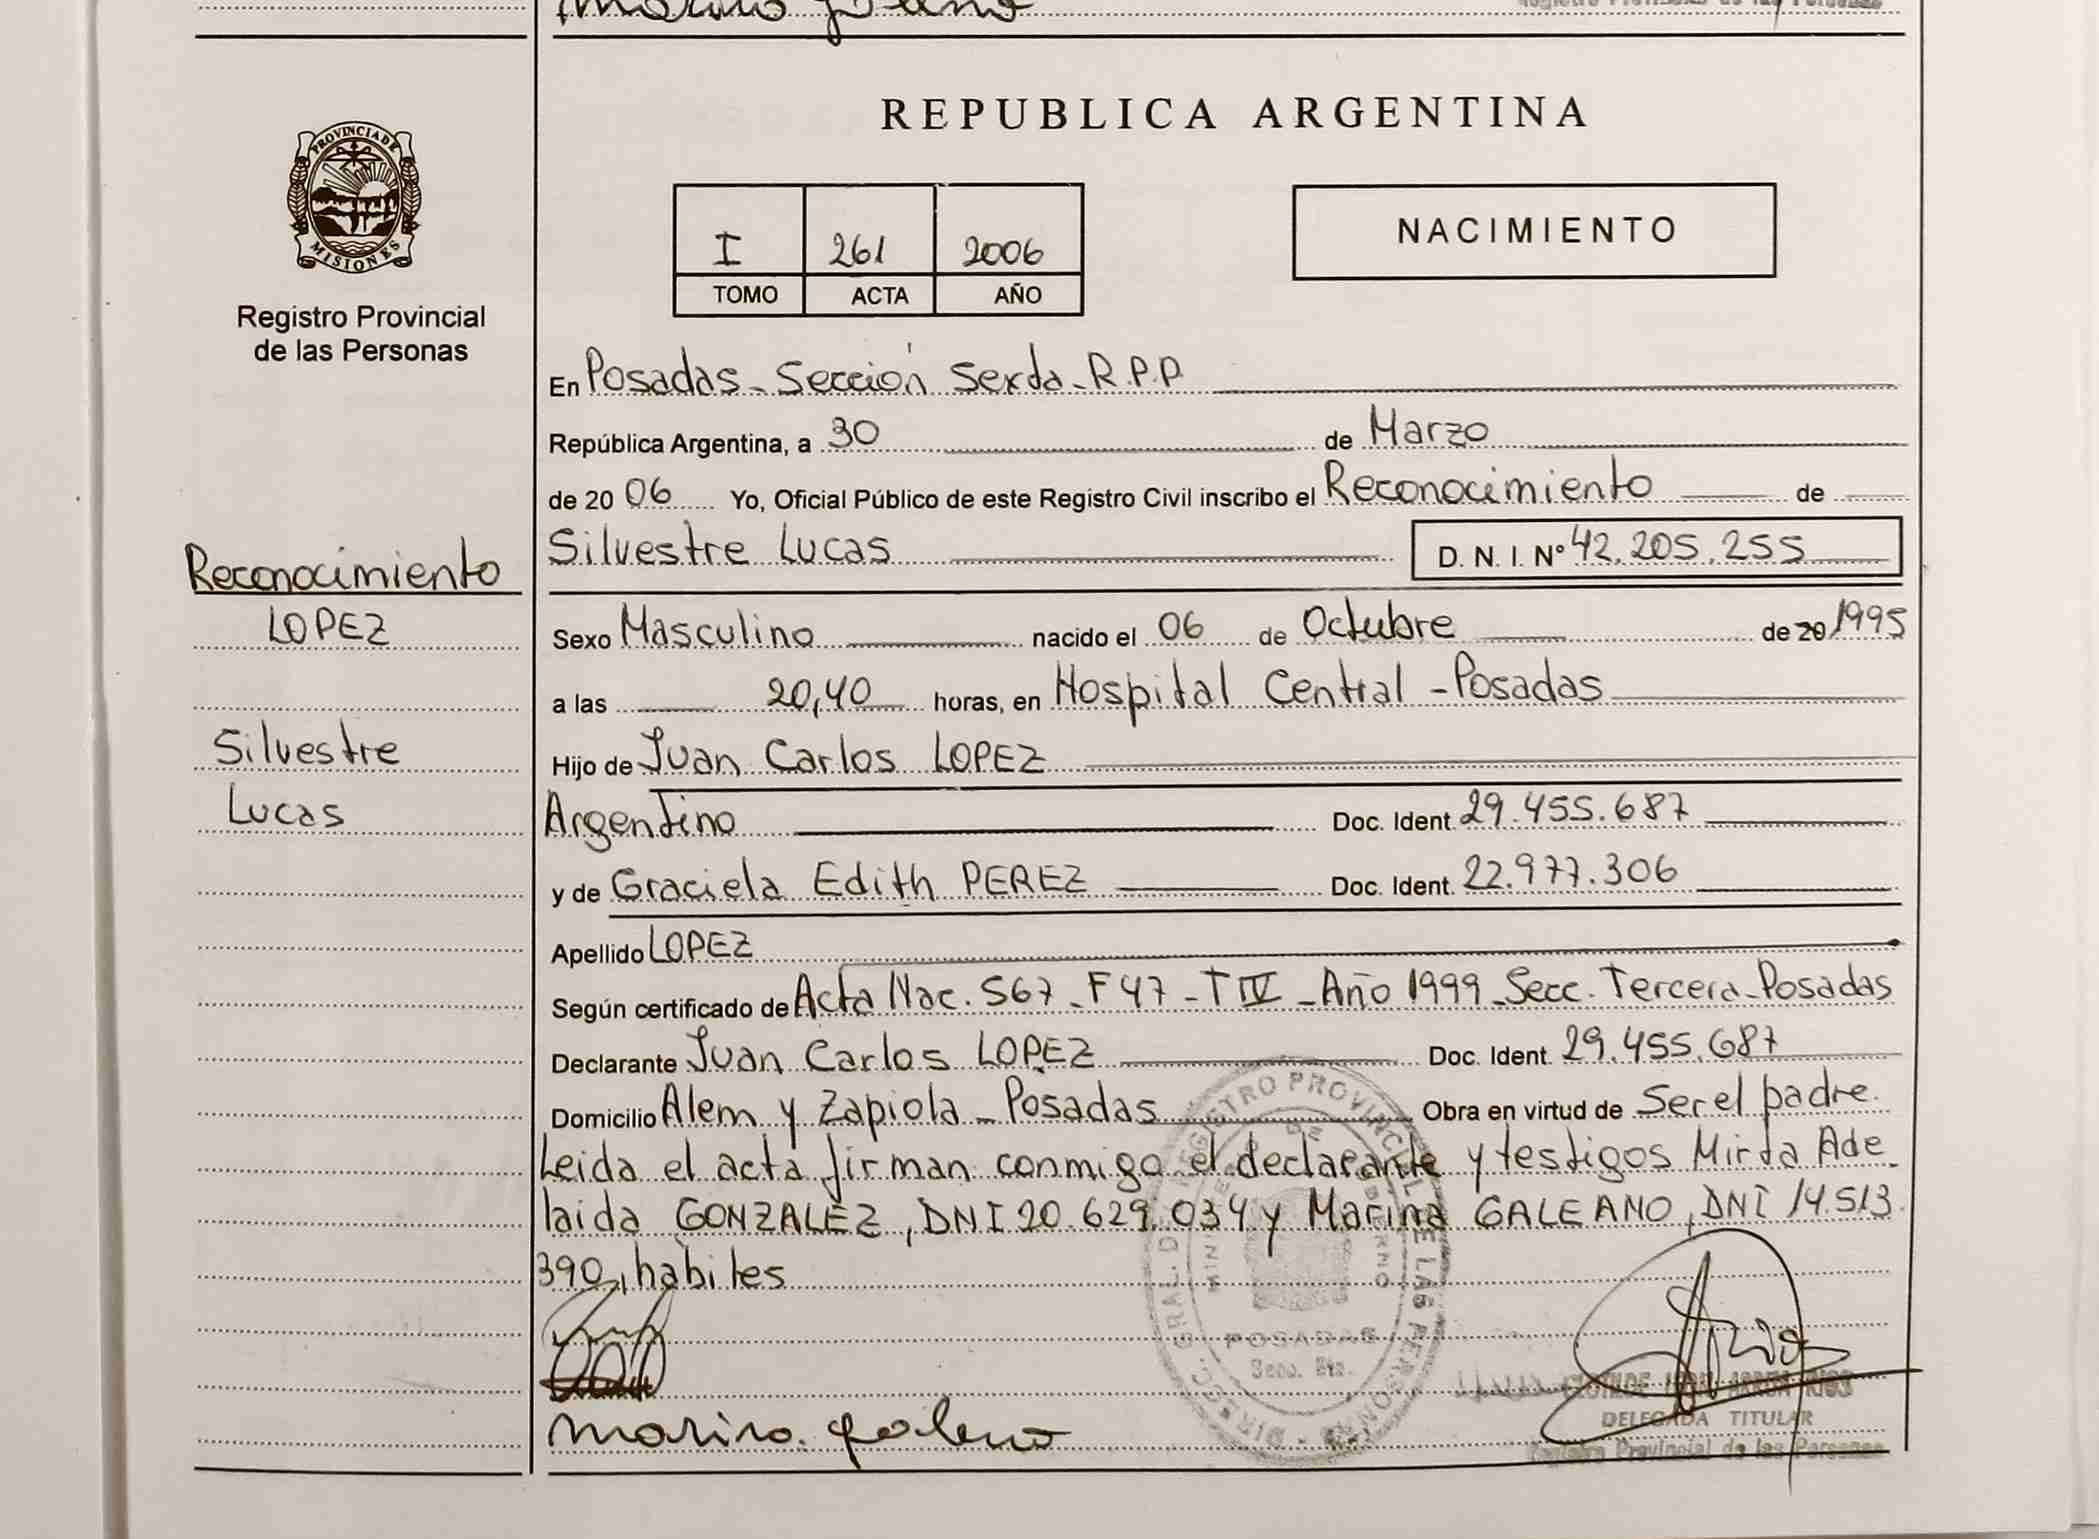 REPUBLICA ARGENTINA
PROVINCIA DE
MISIONES
Registro Provincial
de las Personas
I 261 2006
TOMO ACTA AÑO
NACIMIENTO
En Posadas - Sección Sexta - R.P.P.
República Argentina, a 30 de Marzo
de 20 06 Yo, Oficial Público de este Registro Civil inscribo el Reconocimiento de
Silvestre Lucas D. N. I. Nº 42.205.255
Reconocimiento
LOPEZ
Silvestre
Lucas
Sexo Masculino nacido el 06 de Octubre de 20 1995
a las 20,40 horas, en Hospital Central - Posadas
Hijo de Juan Carlos LOPEZ
Argentino Doc. Ident. 29.455.687
y de Graciela Edith PEREZ Doc. Ident. 22.977.306
Apellido LOPEZ
Según certificado de Acta Nac. 567 - F 47 - T IV - Año 1999 - Secc. Tercera - Posadas
Declarante Juan Carlos LOPEZ Doc. Ident. 29.455.687
Domicilio Alem y Zapiola - Posadas Obra en virtud de Ser el padre.
Leida el acta firman conmigo el declarante y testigos Mirta Ade
laida GONZALEZ, DNI 20.629.034 y Marina GALEANO, DNI 14.513.
390, hábiles
DIRECC. GRAL. DE REGISTRO PROVINCIAL DE LAS PERSONAS
MINISTERIO DE GOBIERNO
POSADAS
Secc. 6ta.
Marina Galeano
RIOS
DELEGADA TITULAR
Registro Provincial de las Personas